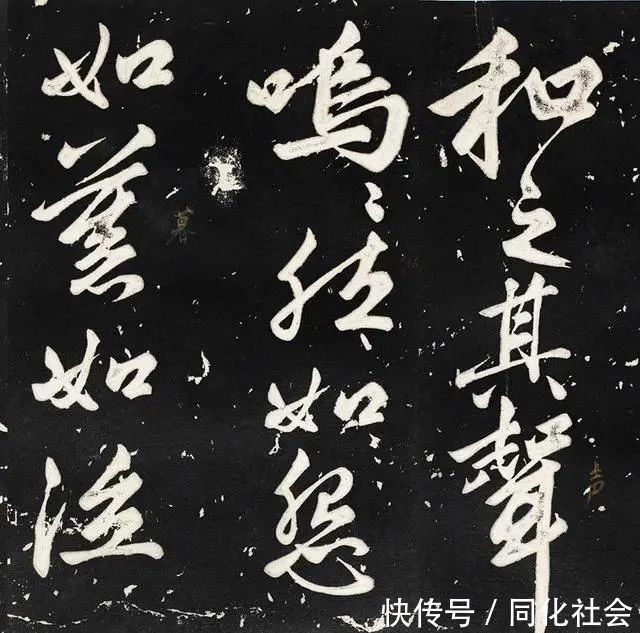 和之其聲
嗚〻然如怨
如慕如泣
暮
声
快传号 / 同化社会